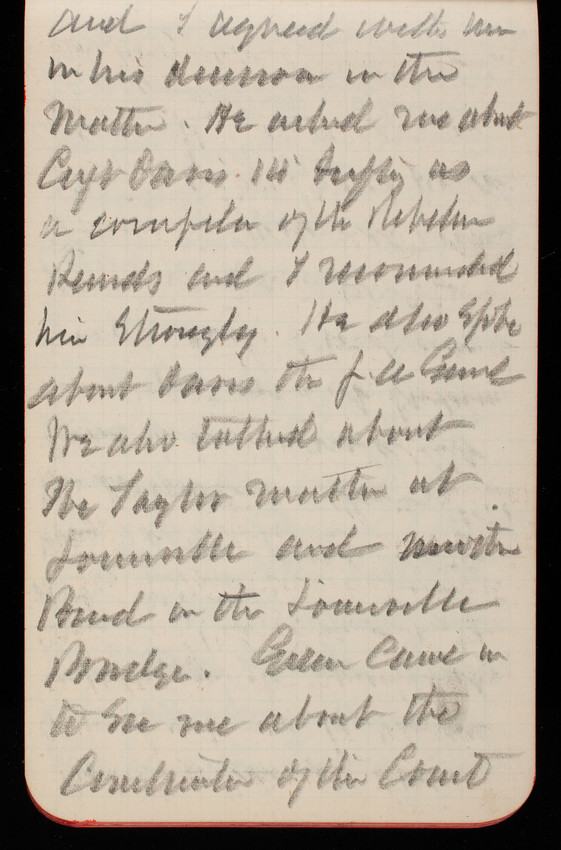 and I agreed with him
in his decision in the
Matter. He asked me about
Capt Davis as
a compiler of the Rebellion
Records and I recommended
him Strongly. He also Spoke
about Davis the
We also talked about
the Taylor matter at
Louisville and
Bond in the Louisville
Bridge. Green came in
to See me about the
of the Court